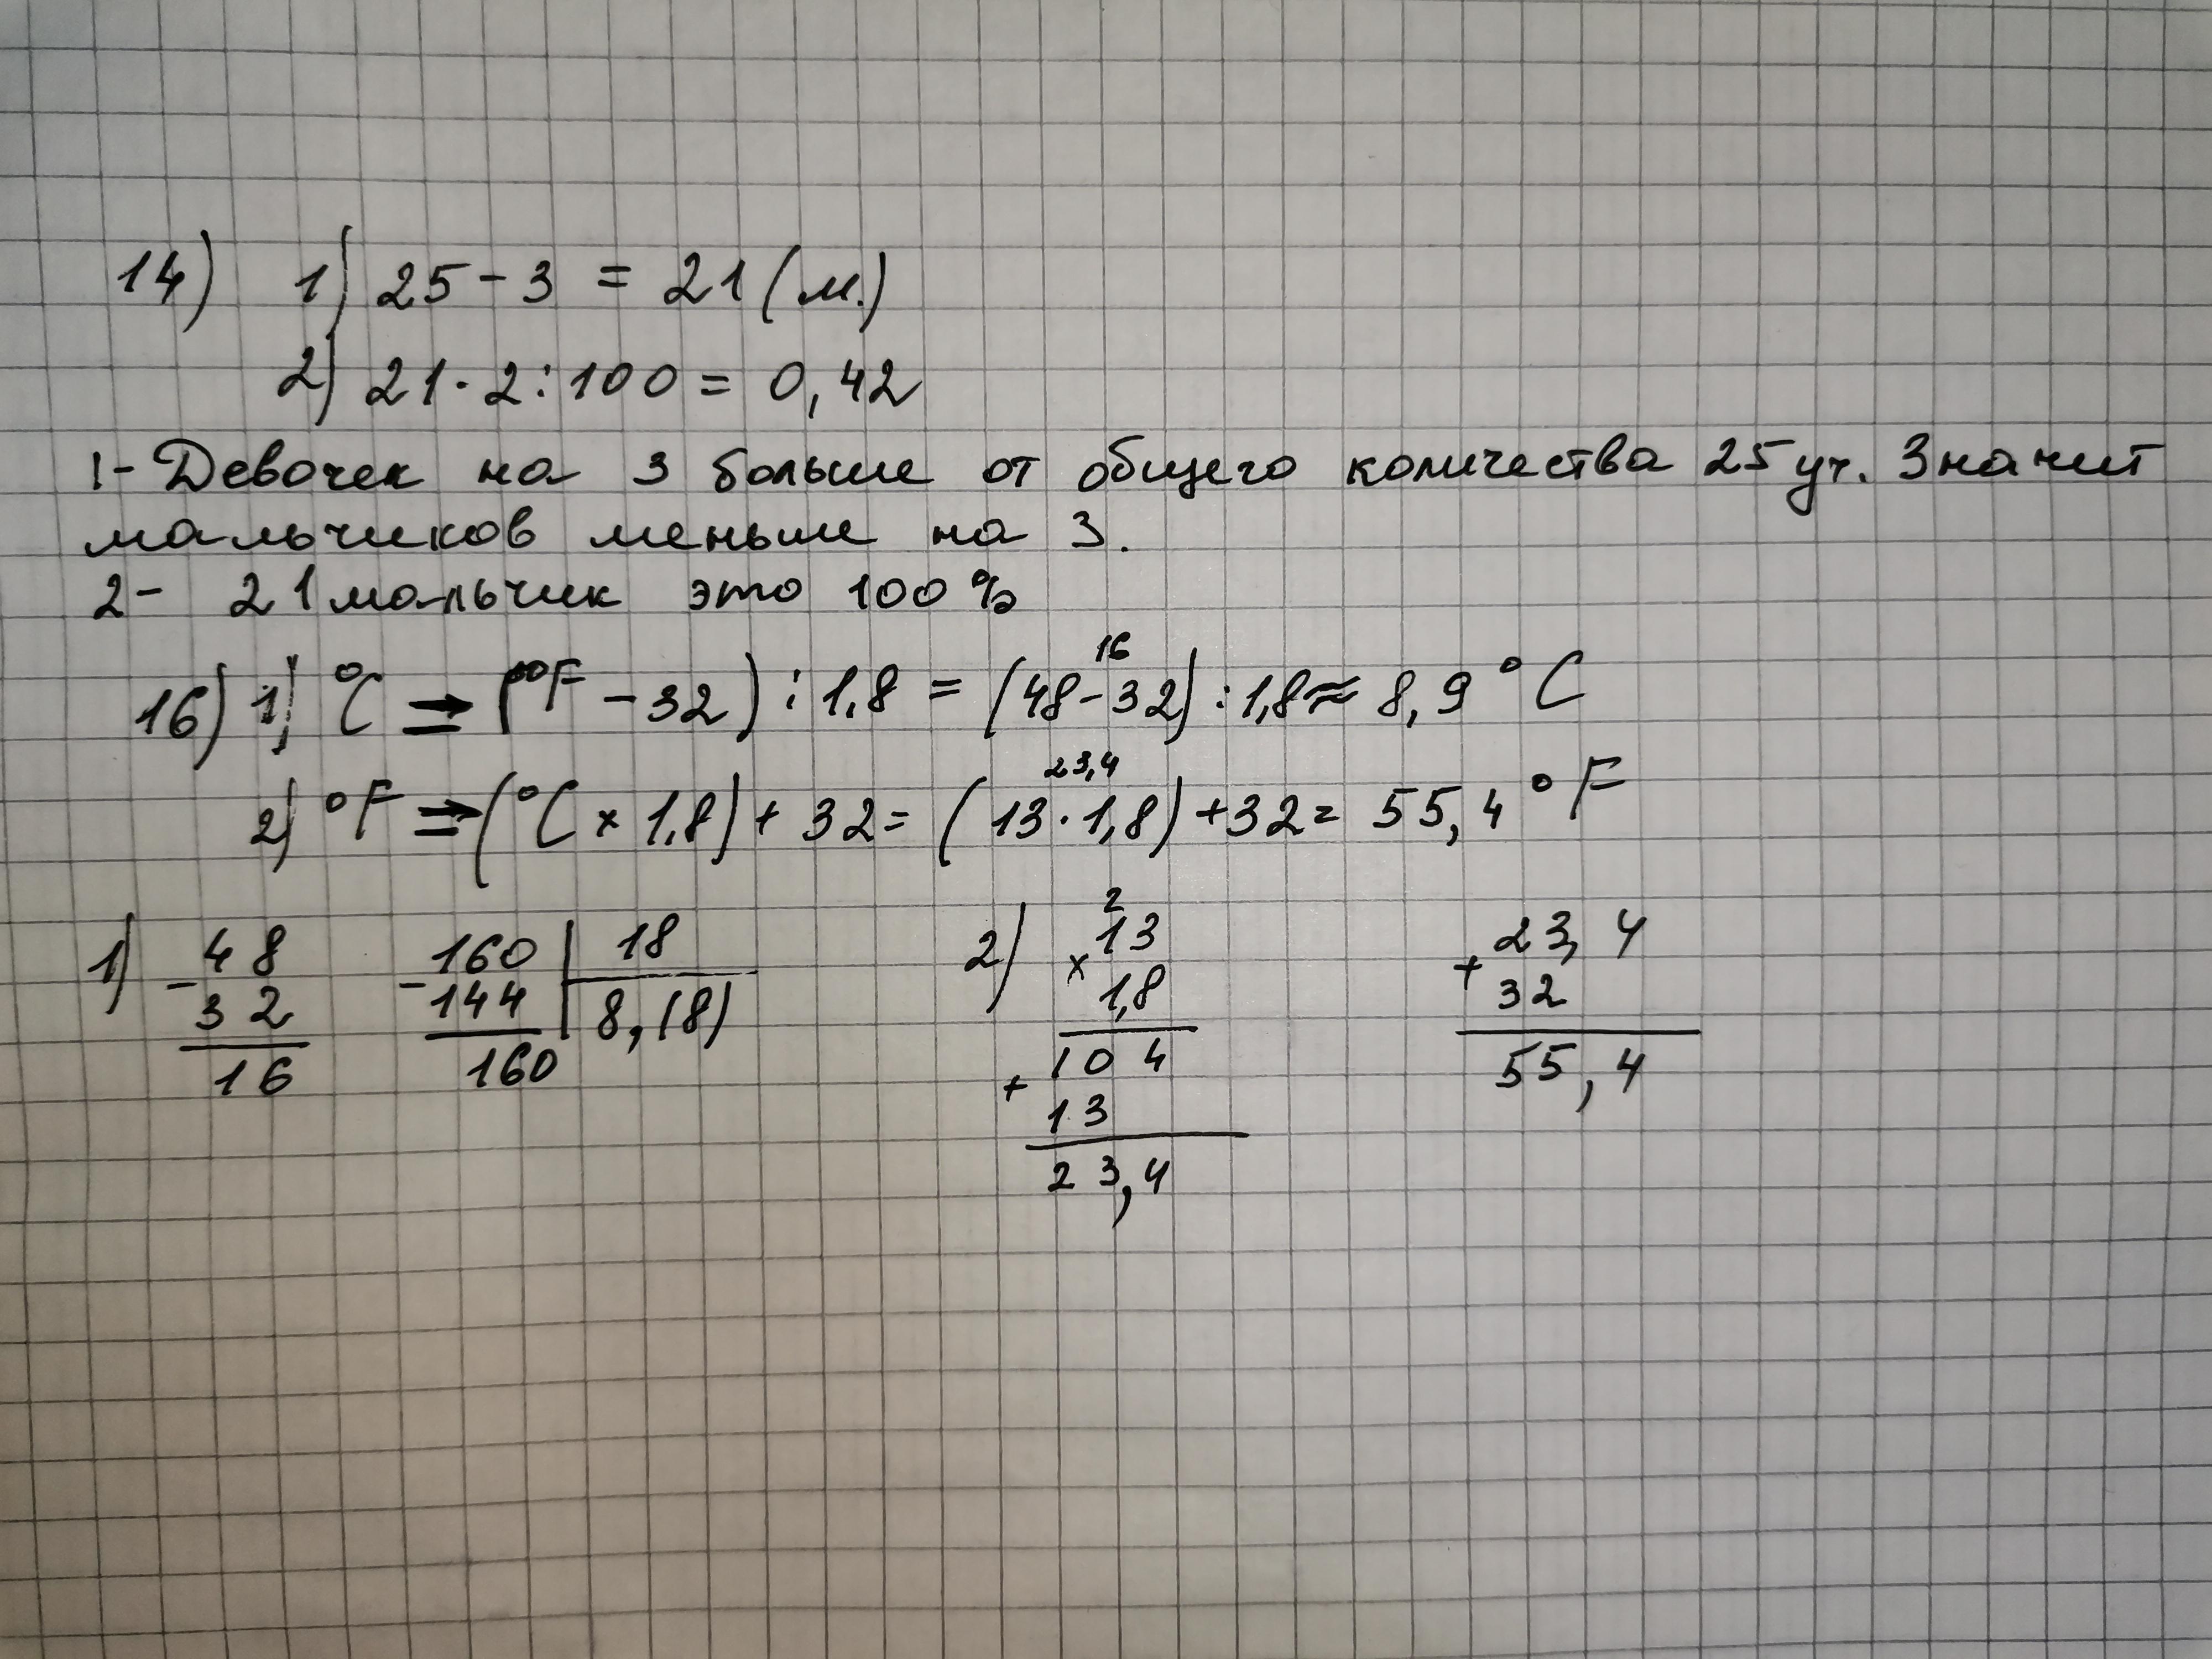 14) 1) 25 - 3 = 21 (м.)
2) 21 · 2 : 100 = 0,42
1- Девочек на 3 больше от общего количества 25 уч. Значит
мальчиков меньше на 3.
2- 21 мальчик это 100 %
16
16) 1) °C ⇒ (°F - 32) : 1,8 = (48 - 32) : 1,8 ≈ 8,9 °C
23,4
2) °F ⇒ (°C × 1,8) + 32 = (13 · 1,8) + 32 = 55,4 °F
1) - 48 - 160 | 18 2) 2 × 13 + 23,4
32 144 | 8,(8) 1,8 32
16 160 + 104 55,4
13
23,4